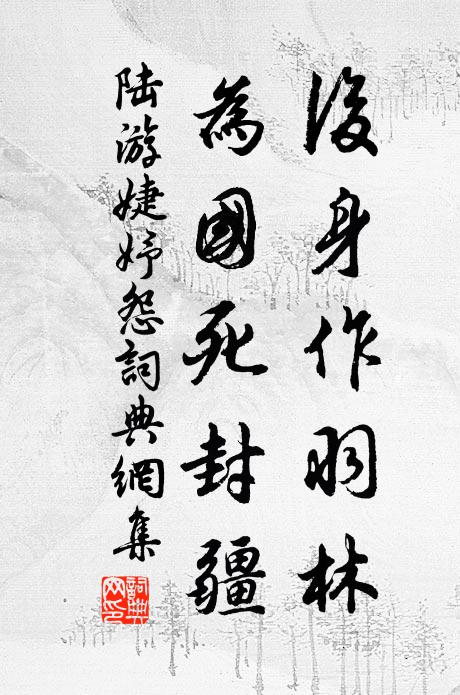 後身作羽林
為國死封疆
陸游婕妤怨詞典網集